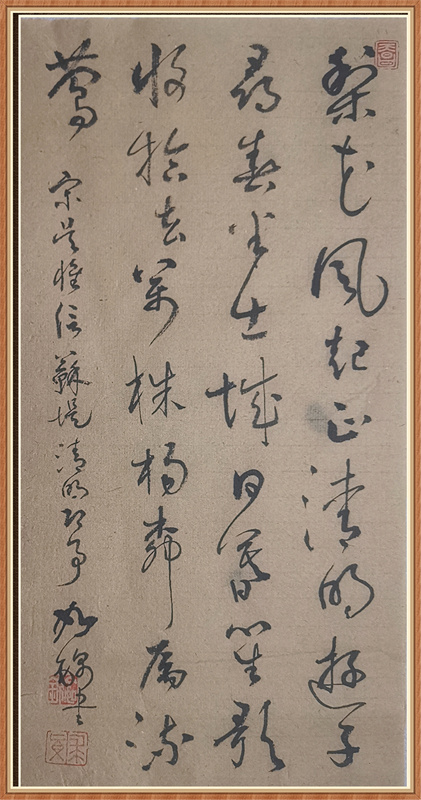 梨花風起正清明遊子
尋春半出城日暮笙歌
收拾去萬株楊柳屬流
鶯 宋吳惟信蘇堤清明即事